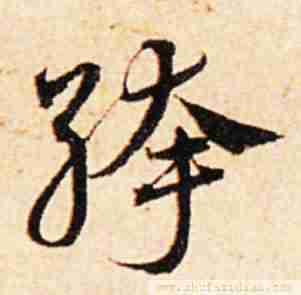 絳
www.shufazidian.com